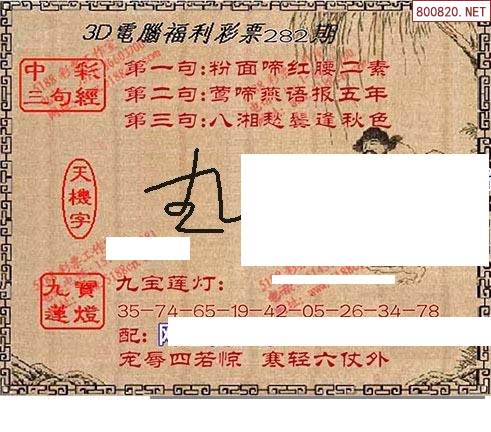 800820.NET
3D電腦福利彩票282期
中彩三句經
第一句:粉面啼红腰二素
第二句:莺啼燕语报五年
第三句:八湘愁鬓逢秋色
天機字
九寶蓮燈
九宝莲灯:
35-74-65-19-42-05-26-34-78
配:
宠辱四若惊 寒轻六仗外